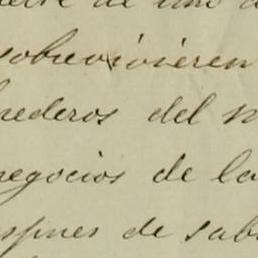 de uno
sobrevivieren
rederos del
negocios de la
spues de sab